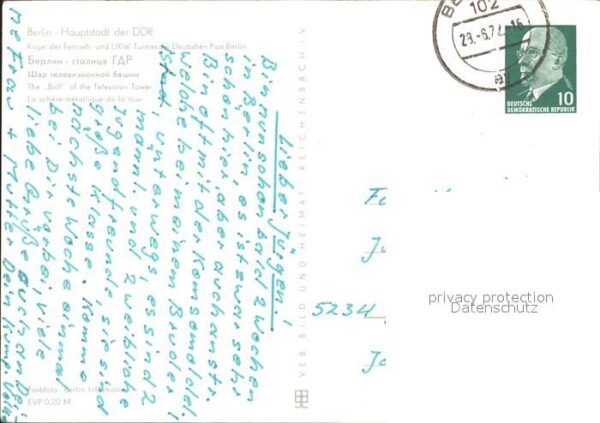 Berlin - Hauptstadt der DDR
Kugel des Fernseh- und UKW-Turmes der Deutschen Post Berlin
Берлин - столица ГДР
Шар телевизионной башни
The „Ball" of the Television Tower
La sphère métallique de la tour
Lieber Jürgen!
Bin nun schon bald 2 Wochen
in Berlin, es ist zwar sehr
schön hier, aber auch
Bin oft mit der
welche bei meinem Bruder
ist, unterwegs, es sind 2
männl. und 2 weibliche
Jugendfreunde, sie sind
große Klasse. Komme
nächste Woche einmal
bei Dir vorbei, viele
liebe Grüße auch an Dei-
ne Frau + Mutter Dein
Farbfoto: Berlin-Information
EVP 0,20 M
VEB BILD UND HEIMAT REICHENBACH i. V.
102
23.-6.72.-16
DEUTSCHE
DEMOKRATISCHE REPUBLIK
10
5234
privacy protection
Datenschutz